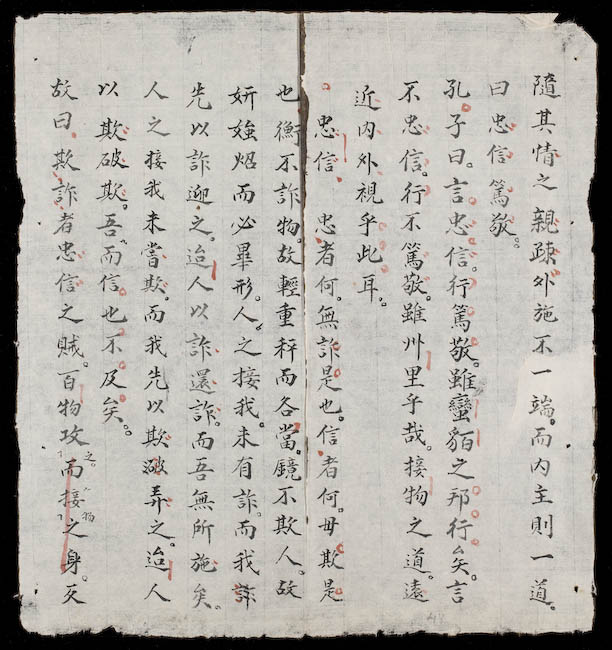 隨其情之親疎外施不一端。而內主則一道。
曰忠信篤敬。
孔子曰。言忠信。行篤敬。雖蠻貊之邦行矣。言
不忠信。行不篤敬。雖州里乎哉。接物之道。遠
近內外視乎此耳。
忠信 忠者何。無詐是也。信者何。毋欺是
也衡不詐物。故輕重秤而各當。鏡不欺人。故
妍媸炤而必畢形。人之接我。未有詐。而我詐
先以詐迎之。迨人以詐還詐。而吾無所施矣。
人之接我未嘗欺。而我先以欺破弄之。迨人
以欺破欺。吾而信也不反矣。
故曰。欺詐者忠信之賊。百物攻之。而接物之身。